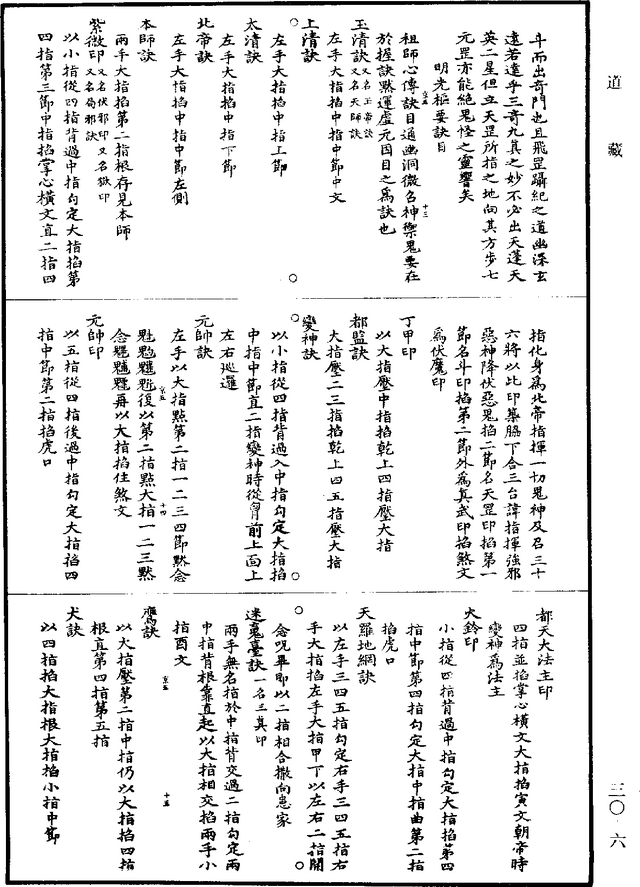 道藏
斗而出奇門也且飛罡躡紀之道幽深玄
遠若達乎三奇九真之妙不必出天蓬天
英二星但立天罡所指之地向其方步七
元罡亦能絕鬼怪之靈響矣
明光樞要訣目
祖師心傳訣目通幽洞微召神禦鬼要在
於握訣默運虛元因目之為訣也
玉清訣又名玉帝訣又名天師訣
左手大指掐中指中節中文
上清訣
左手大指掐中指上節
太清訣
左手大指掐中指下節
北帝訣
左手大指掐中指中節左側
本師訣
兩手大指掐第二指根存見本師
紫微印又名伏邪印又名獄印又名局邪訣
以小指從四指背過中指勾定大指掐第
四指第三節中指掐掌心橫文直二指四
指化身為北帝指揮一切鬼神及召三十
六將以此印藥脇下合三台諱指揮強邪
惡神降伏惡鬼掐二節名天罡印掐第一
節名斗印掐第二節外為真武印掐煞文
為伏魔印
丁甲印
以大指壓中指掐乾上四指壓大指
都監訣
大指壓二三指掐乾上四五指壓大指
變神訣
以小指從四指背過入中指勾定大指掐
中指中節直二指變神時從胷前上面上
左右巡邏
元帥訣
左手以大指點第二指一二三四節默念
魁魀魓魒復以第二指點大指一二三默
念䰢魓魒再以大指掐住煞文
元帥印
以五指從四指後過中指勾定大指掐四
指中節第二指掐虎口
都天大法主印
四指並掐掌心橫文大指掐寅文朝帝時
變神為法主
火鈴印
小指從四指背過中指勾定大指掐第四
指中節第四指勾定大指中指曲第二指
掐虎口
天羅地網訣
以左手三四五指勾定右手三四五指右
手大指掐左手大指甲丁以左右二指開
念呪畢即以二指相合撒向患家
迷䰟臺訣一名三箕印
兩手無名指於中指背交過二指勾定兩
中指背根靠直起以大指相交掐兩手小
指酉文
鷹訣
以大指壓第二指中指仍以大指掐四指
根直第四指第五指
犬訣
以四指掐大指根大指掐小指中節
京五 十三
京五 十四
京五 十五
三〇·六